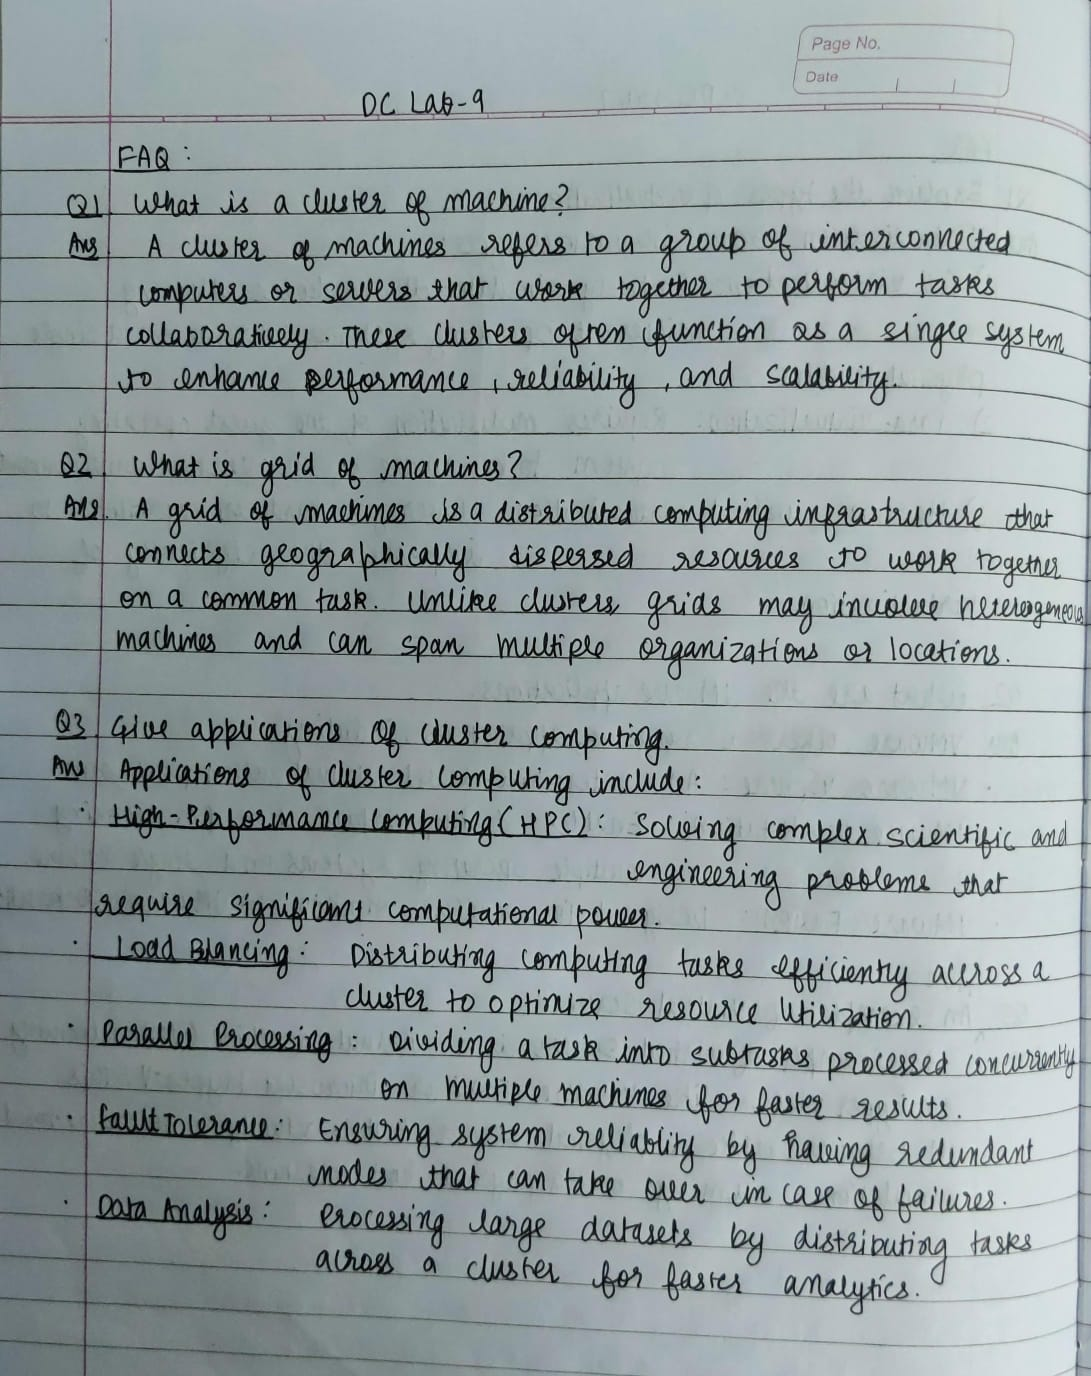 Page No.
Date
DC Lab-9
FAQ :
Q1 What is a cluster of machine?
Ans A cluster of machines refers to a group of interconnected
computers or servers that work together to perform tasks
collaboratively. These clusters often function as a single system
to enhance performance, reliability, and scalability.
Q2 What is grid of machines?
Ans. A grid of machines is a distributed computing infrastructure that
connects geographically dispersed resources to work together
on a common task. Unlike clusters, grids may involve heterogeneous
machines and can span multiple organizations or locations.
Q3 Give applications of cluster computing.
Ans Applications of cluster computing include:
· High-Performance Computing (HPC): Solving complex scientific and
engineering problems that
require significant computational power.
· Load Blancing: Distributing computing tasks efficiently accross a
cluster to optimize resource utilization.
· Parallel Processing: Dividing a task into subtasks processed concurrently
on multiple machines for faster results.
· Fallut Tolerance: Ensuring system reliablity by having redundant
nodes that can take over in case of failures.
· Data Analysis: Processing large datasets by distributing tasks
across a cluster for faster analytics.